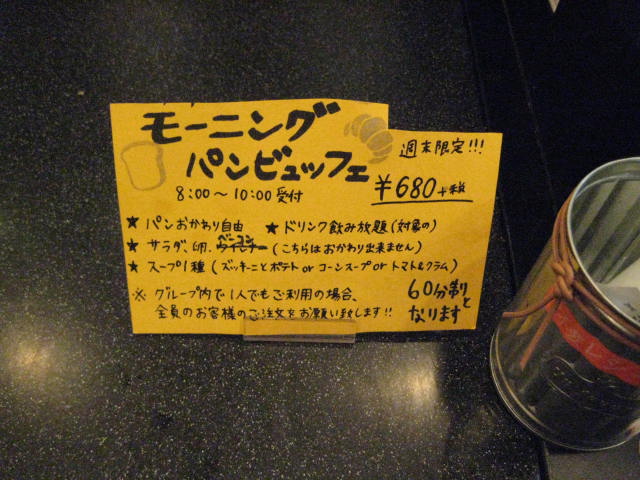 モーニング
パンビュッフェ
週末限定!!!
8:00～10:00受付
¥680+税
★ パンおかわり自由 ★ ドリンク飲み放題(対象の)
★ サラダ、卵、ベーコン(こちらはおかわり出来ません)
★ スープ1種(ズッキーニとポテト or コーンスープ or トマト&クラム)
※ グループ内で1人でもご利用の場合、
全員のお客様のご注文をお願い致します!!
60分制と
なります